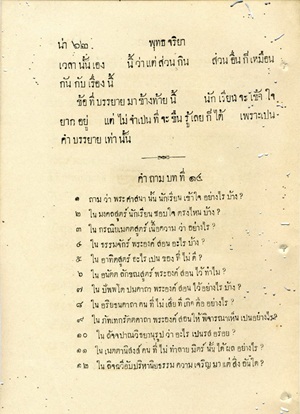 น่า ๖๒ พุทธ จริยา
เวลา นั้น เอง นี้ ว่า แต่ ส่วน กิน ส่วน อื่น ก็ เหมือน
กัน กับ เรื่อง นี้
ข้อ ที่ บรรยาย มา ข้างท้าย นี้ นัก เรียน จะ เข้า ใจ
ยาก อยู่ แต่ ไม่ จำเปน ที่ จะ ขืน รู้ เลย ก็ ได้ เพราะเปน
คำ บรรยาย เท่า นั้น
คำ ถาม บท ที่ ๑๔
๑ ถาม ว่า พระ ศาสนา นั้น นักเรียน เข้าใจ อย่างไร บ้าง ?
๒ ใน มงคลสูตร์ นักเรียน ชอบใจ ตรงไหน บ้าง ?
๓ ใน กรณียเมตตสูตร์ เนื้อความ ว่า อย่างไร ?
๔ ใน ธรรมจักร์ พระองค์ สอน อะไร บ้าง ?
๕ ใน อาทิตสูตร์ อะไร เปน ของ ที่ ไม่ ดี ?
๖ ใน อนัตต ลักขณสูตร์ พระองค์ สอน ไว้ ทำไม ?
๗ ใน ปัพพโต ปมคาถา พระองค์ สอน ไว้ อย่างไร บ้าง ?
๘ ใน อริยธนคาถา คน ที่ ไม่ เสีย ที่ เกิด คือ อย่างไร ?
๙ ใน ภัทเทกรัตตคาถา พระองค์ สอน ให้ พิจารณา เห็น เปนอย่างไร ?
๑๐ ใน อัจจาปณวิธยานุรูป ว่า อะไร เปนรส อร่อย ?
๑๑ ใน เมตตานิสังส์ คน ที่ ไม่ ทำลาย มิตร์ นั้น ได้ผล อย่างไร ?
๑๒ ใน อัจฉริยอัปริหานิยธรรม ความ เจริญ มา แต่ สิ่ง อันใด ?